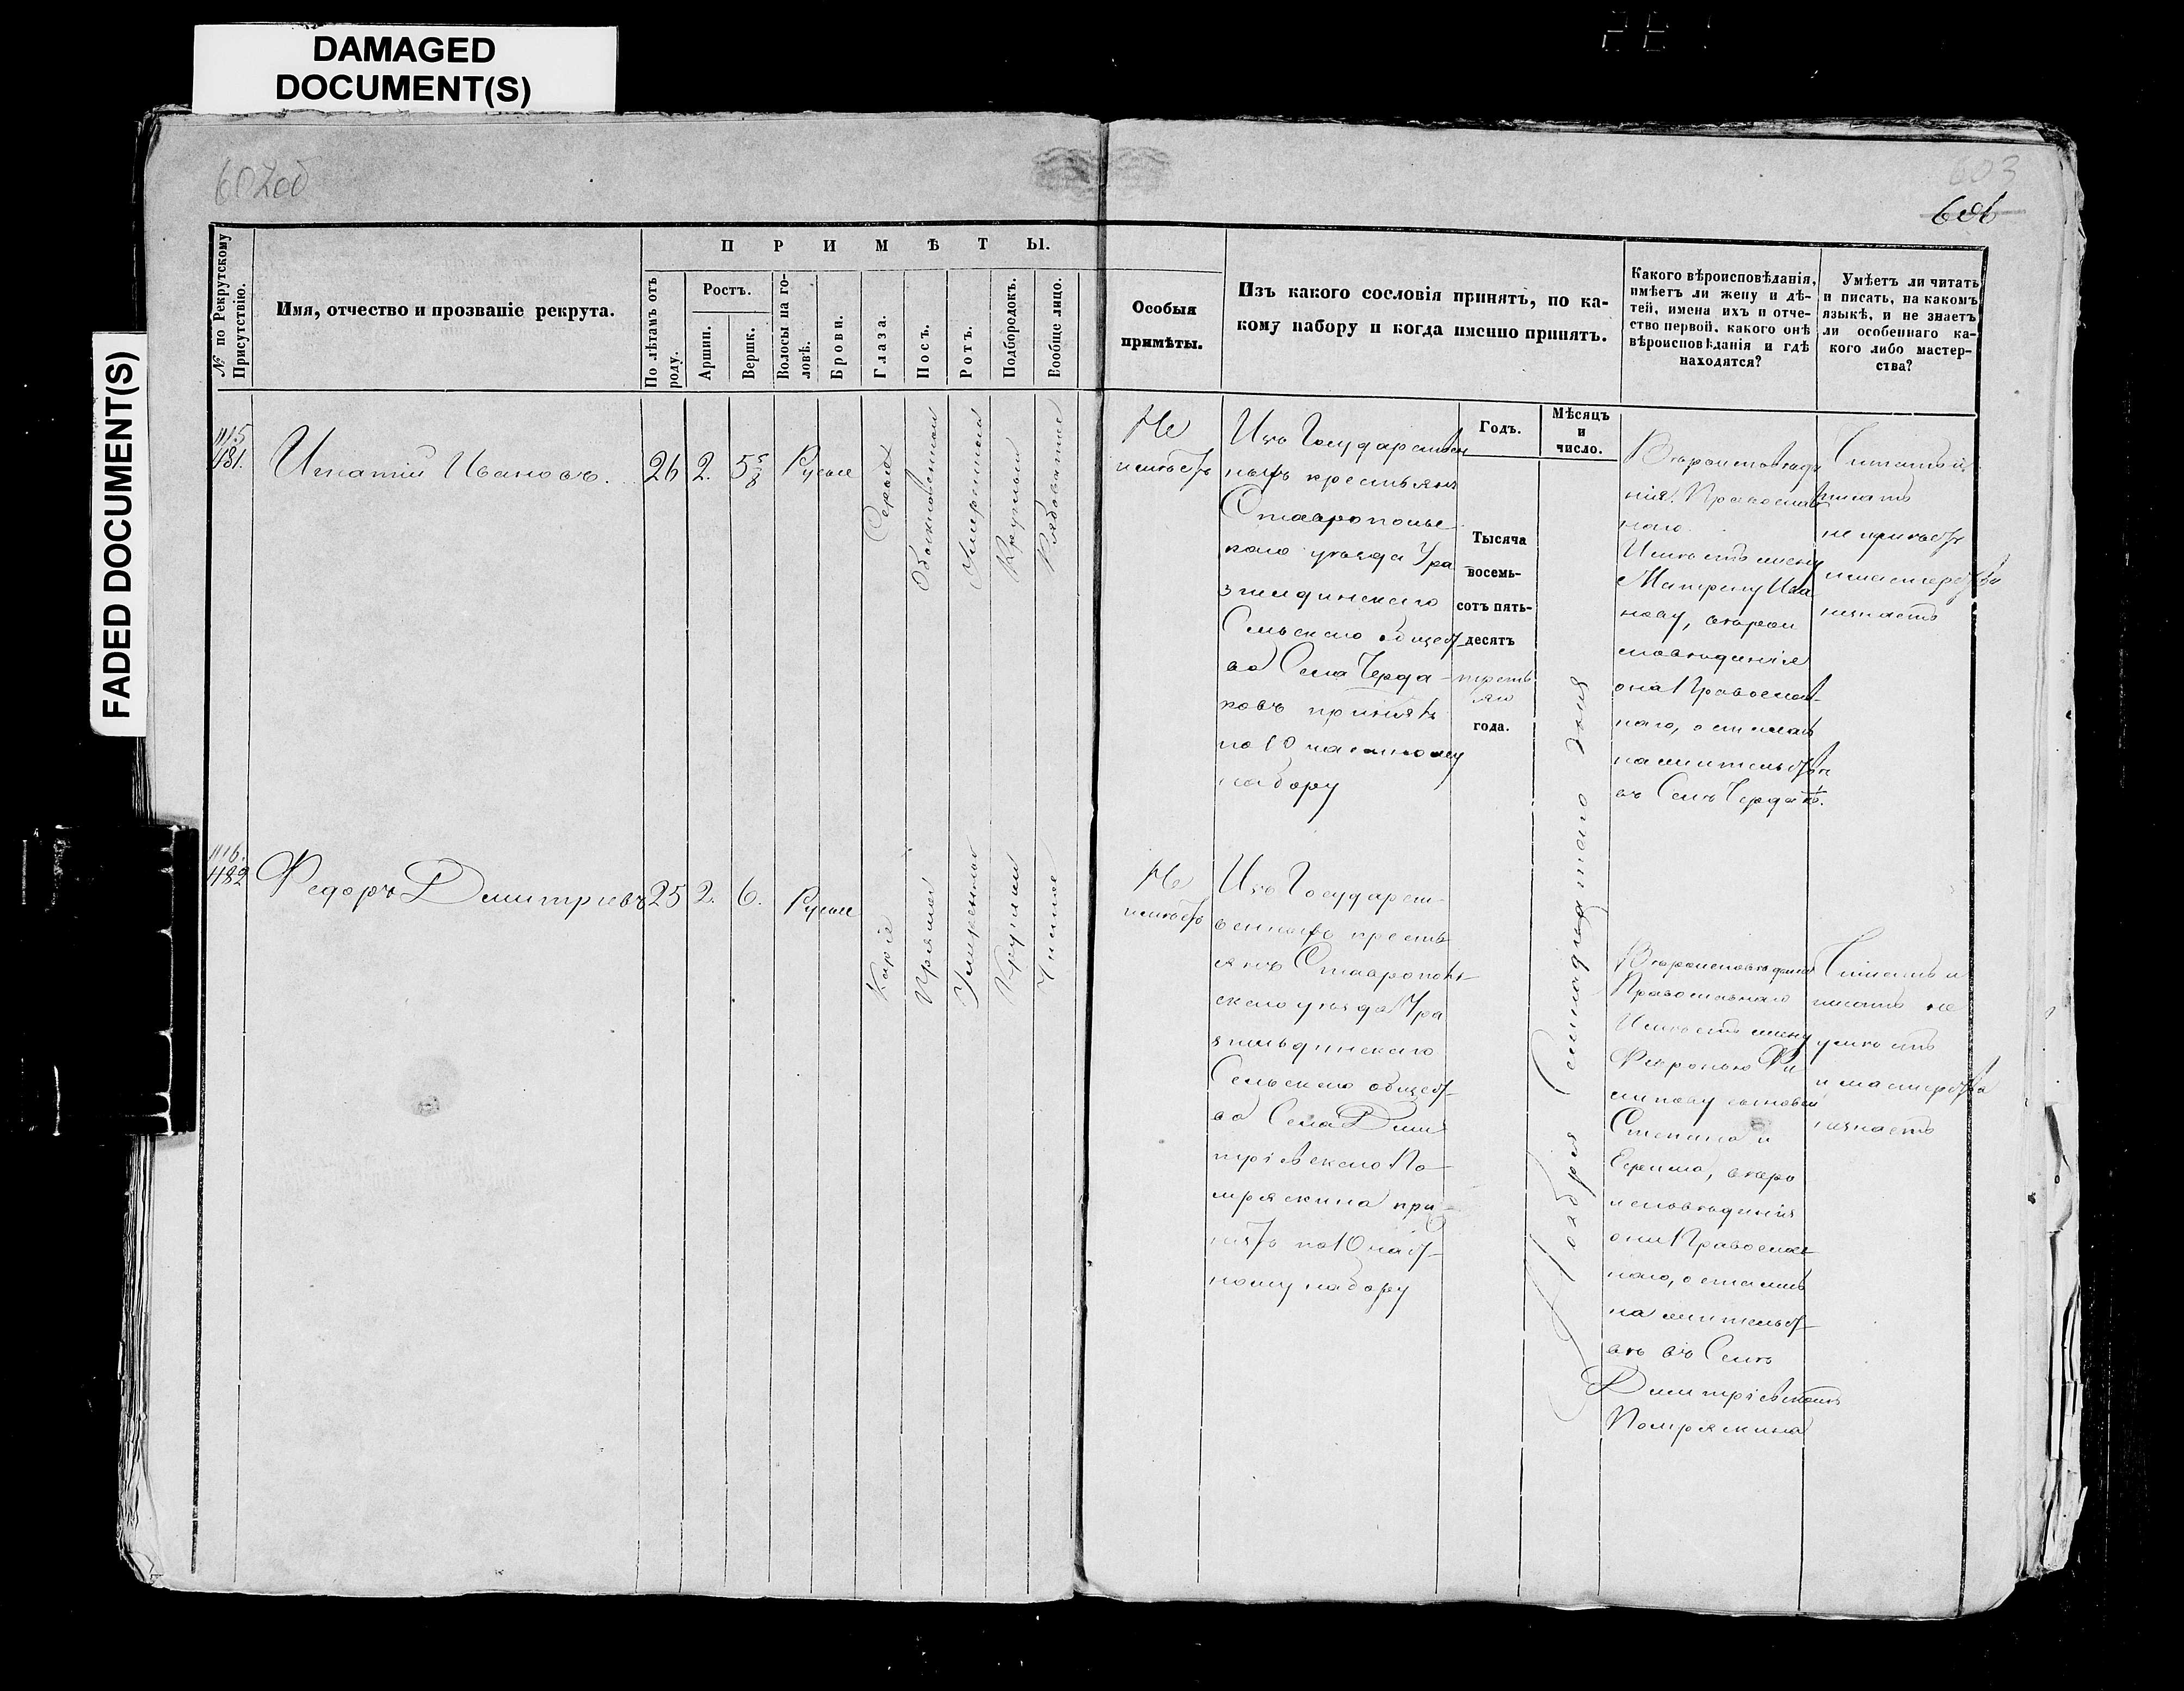 DAMAGED
DOCUMENT(S)
FADED DOCUMENT(S)
602об
603
606
№ по Рекрутскому
Присутствію.
Имя, отчество и прозваніе рекрута.
ПРИМѢТЫ.
По лѣтамъ отъ
роду.
Ростъ.
Аршин.
Вершк.
Волосы на го-
ловѣ.
Брови.
Глаза.
Носъ.
Ротъ.
Подбородокъ.
Вообще лицо.
Особыя
примѣты.
Изъ какого сословія принятъ, по ка-
кому набору и когда именно принятъ.
Годъ.
Мѣсяцъ
и
число.
Какого вѣроисповѣданія,
имѣетъ ли жену и дѣ-
тей, имена ихъ и отче-
ство первой, какого онѣ
вѣроисповѣданія и гдѣ
находятся?
Умѣетъ ли читать
и писать, на какомъ
языкѣ, и не знаетъ
ли особеннаго ка-
кого либо мастер-
ства?
1115
481.
Игнатій Ивановъ.
26
2.
5 5/8
Русые
Сѣрые
Обыкновенный
Умѣренный
Круглый
Рябоватое
Не
имѣетъ
Изъ Государствен
ныхъ крестьянъ
Ставрополь
скаго уѣзда Ура
згильдинскаго
Сельскаго общест
ва Села Черда-
ковъ принятъ
по 10 частному
набору
Тысяча
восемь-
сотъ пять-
десятъ
третья
го
года.
Ноября Семнадцатаго дня
Вѣроисповѣда
нія Православ
наго
Имѣетъ жену
Матрену Ива
нову, вѣроис
повѣданія
она Православ-
наго, осталась
на жительствѣ
въ Селѣ Чердак.
Читать и
писать
не умѣетъ
и мастерства
незнаетъ
1116.
482
Федоръ Дмитріевъ
25
2.
6.
Русые
Каріе
Прямой
Умѣренный
Круглый
Чистое
Не
имѣетъ
Изъ Государст-
венныхъ кресть
янъ Ставрополь
скаго уѣзда Ура
згильдинскаго
Сельскаго общест-
ва Села Дми
тріевскаго По-
мряскина при-
нятъ по 10 част-
ному набору
Вѣроисповѣданія
Православнаго
Имѣетъ жену
Февронью Фи
липову сыновей
Степана и
Ефима, вѣро
исповѣданія
они Православ
наго, остались
на жительст-
вѣ въ Селѣ
Дмитріевкомъ
Помряскина
Читать и
писать не
умѣетъ
и мастерства
незнаетъ